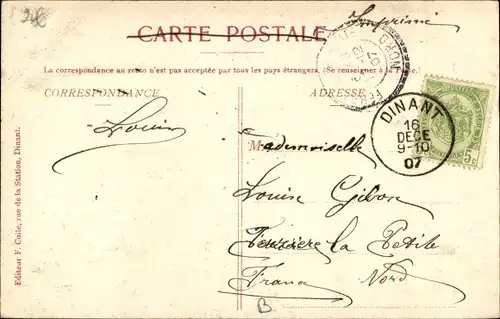 Imprimé
CARTE POSTALE
La correspondance au recto n'est pas acceptée par tous les pays étrangers. (Se renseigner à la Poste.)
CORRESPONDANCE
ADRESSE
NORD
07
DINANT
16
DECE
9-10
07
5c
Louis
Mademoiselle
Louise Gibon
Ferrière la Petite
France Nord
B
Editeur F. Colle, rue de la Station, Dinant.